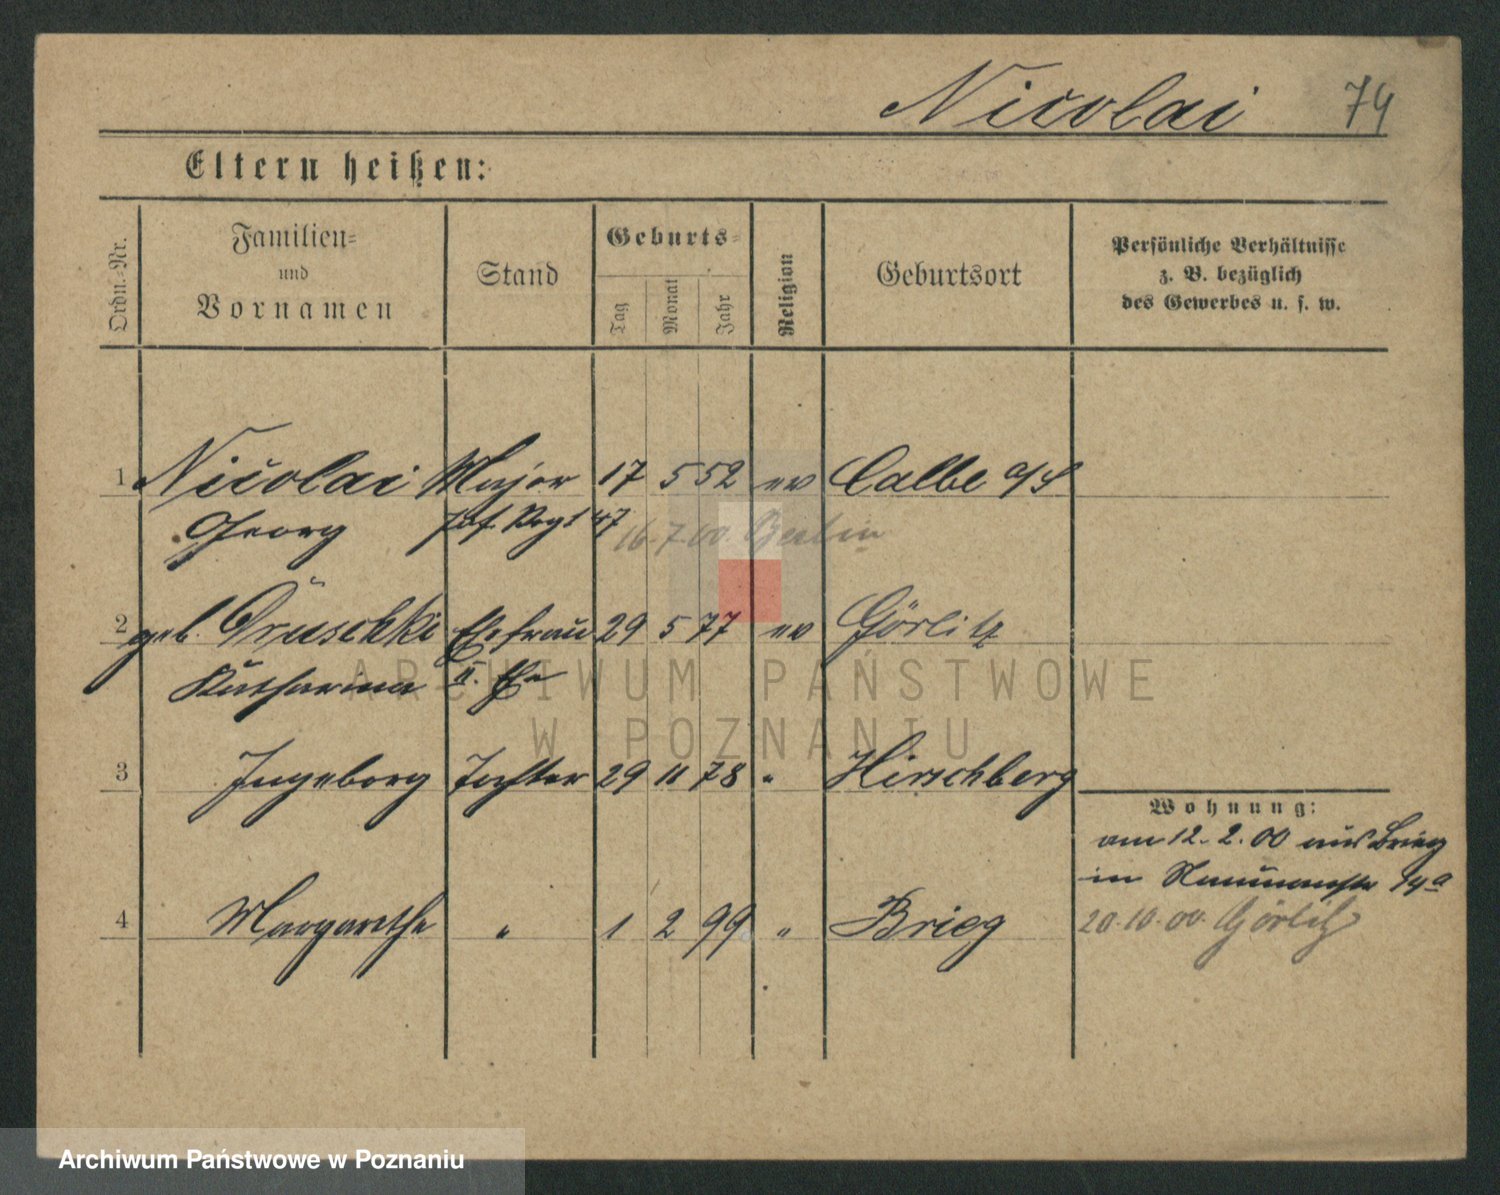 Nicolai 74
Eltern heißen:
Ordn.-Nr.
Familien-
und
Vornamen
Stand
Geburts-
Tag
Monat
Jahr
Religion
Geburtsort
Persönliche Verhältnisse
z. B. bezüglich
des Gewerbes u. s. w.
1 Nicolai Major 17 5 52 ev Calbe a/S
Georg Inf. Rgt 47 16.7.00. Berlin
2 geb. Druschki Ehefrau 29 5 77 ev Görlitz
Katharina II. Ehe
3 Ingeborg Tochter 29 11 78 " Hirschberg
Wohnung:
am 12. 2. 00 aus Brieg
in Naumannstr 14a
4 Margarethe " 1 2 99 " Brieg
20.10.00. Görlitz
ARCHIWUM PAŃSTWOWE
W POZNANIU
Archiwum Państwowe w Poznaniu